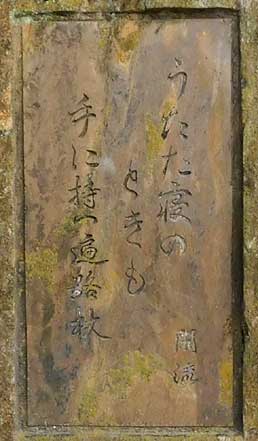 うたた寝の
ときも
手に持つ遍路杖